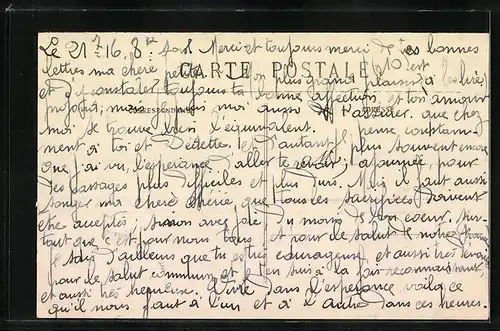 Le 21 7 16, 8 h soir Merci et toujours merci de tes bonnes
lettres ma chère petite. Mon plus grand plaisir 10 est
CARTE POSTALE
à les lire
et d'y constater toujours ta bonne affection et ton amour
CORRESPONDANCE
ADRESSE
moi aussi t'assurer que chez
moi se trouve bien l'équivalent. Je pense constam-
ment à toi et Dédette. Et d'autant plus souvent encore
que j'ai vu l'espérance d'aller te revoir, ajournée pour
des passages plus difficiles et plus durs. Mais il faut aussi
songer ma chère chérie que tous les sacrifices doivent
être acceptés, sinon avec joie du moins de bon coeur, sur-
tout que c'est pour nous tous et pour le salut de notre France
Je sais d'ailleurs que tu es très courageuse et aussi très
pour le salut commun et j'en suis à la fois reconnaissant
et aussi très heureux. Vivre dans l'espérance voilà ce
qu'il nous faut à l'un et à l'autre dans ces heures.